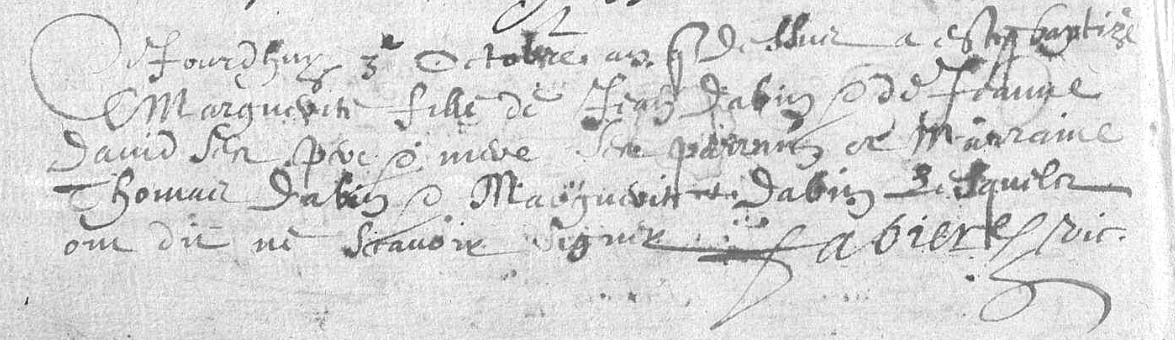 Ce Jourdhuy 3e Octobre an q dessus a este baptizée
Marguerite fille de Jean Dabin & de Jeanne
David ses pere & mere ses parrain et Marraine
Thomas Dabin & Marguerite Dabin Lesquelz
ont dit ne scavoir signer vic.